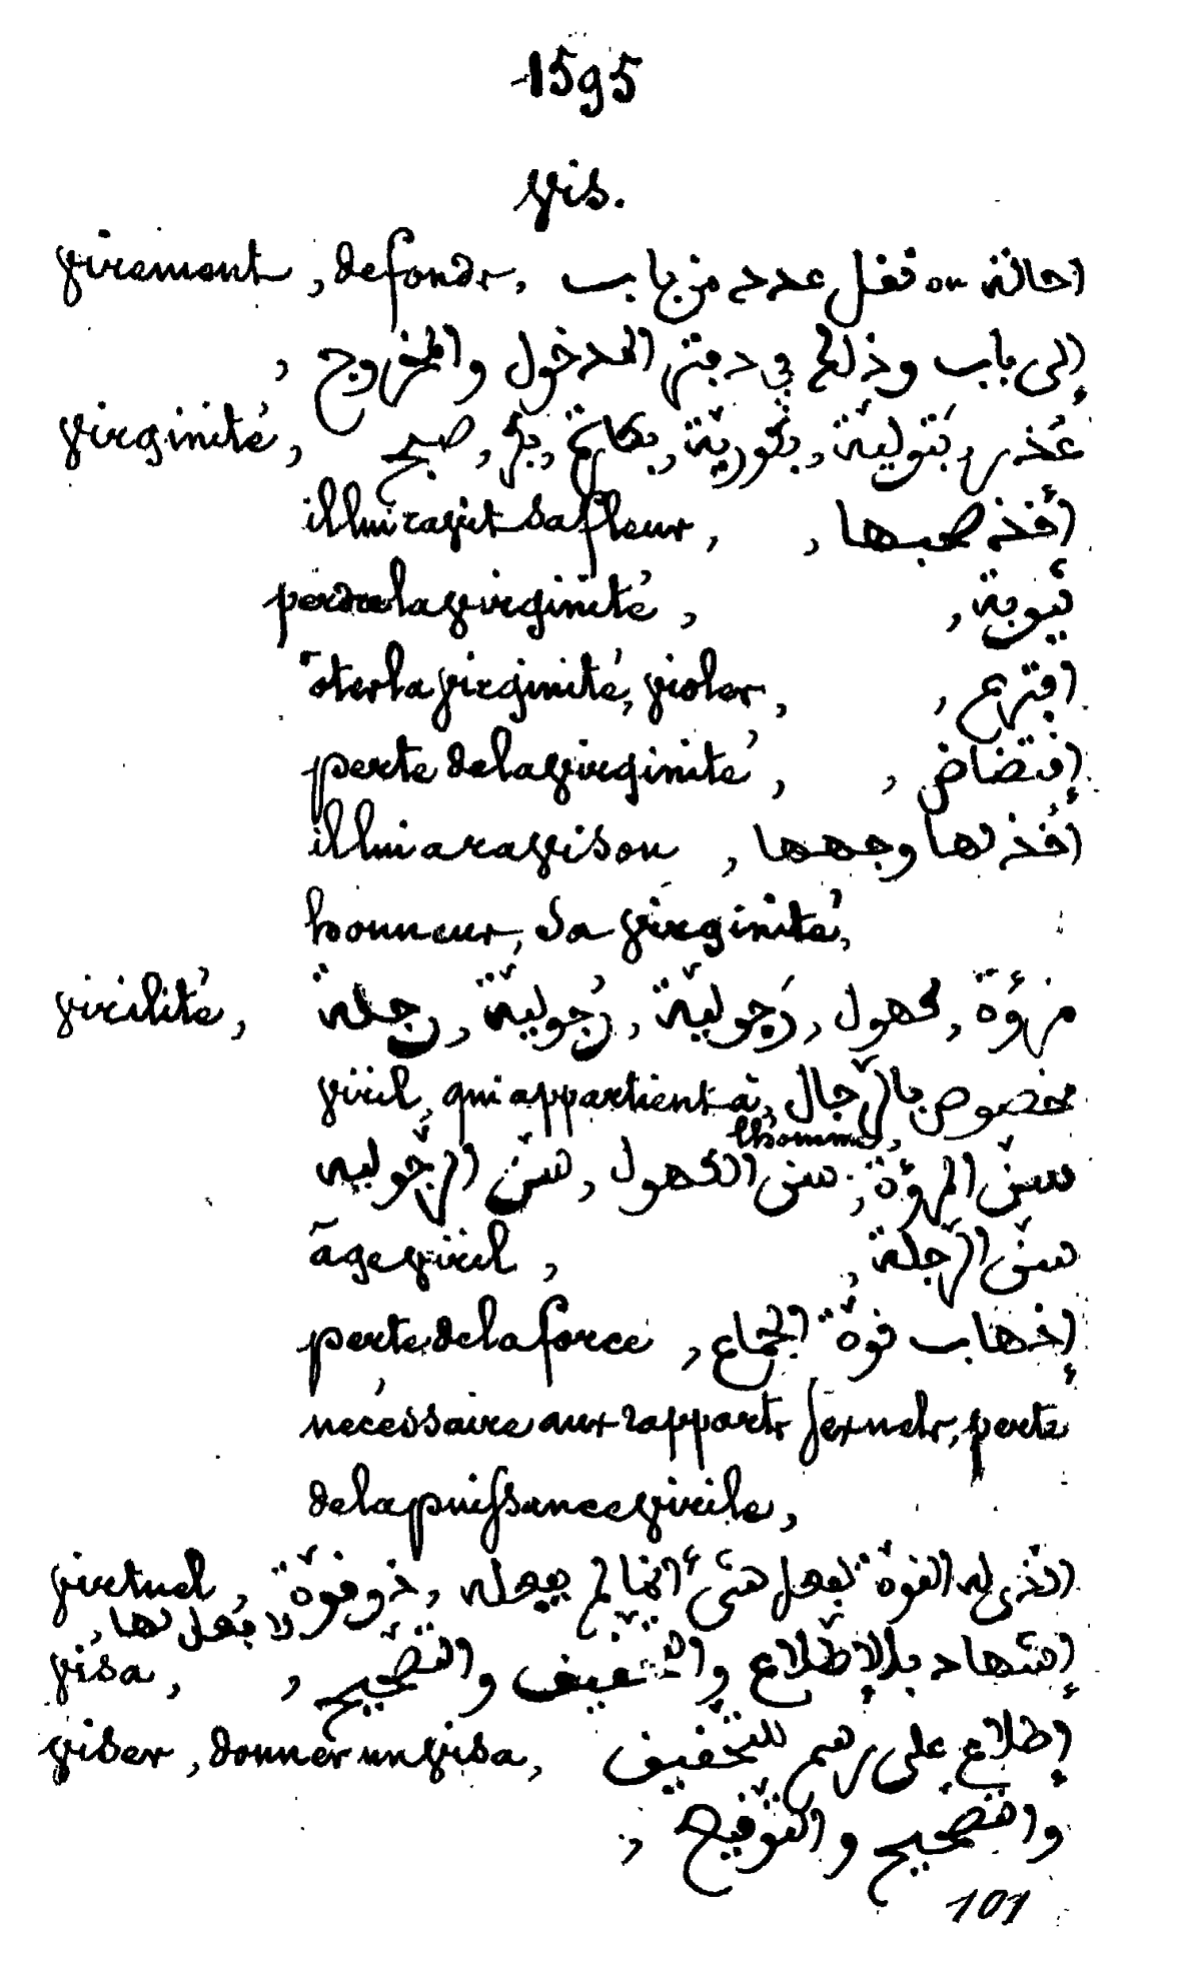 1595
vis.
virement, de fonds, احالة ou نقل عدد من باب
إلى باب وذلك في دفتر المدخول والمخروج,
virginité, عُذر, بَتوليّة, بكُوريّة, بكارة, بكر, صبح
il lui ravit sa fleur, أخذ صبحها,
perdre la virginité, ثيوبة,
ôter la virginité, violer, افترع,
perte de la virginité, إفتضاض,
il lui a ravi son أخذ لها وجهها,
honneur, sa virginité,
virilité, مروّة, كهول, رَجوليّة, رُجوليّة, رجلة
viril, qui appartient à, مخصوص بالرّجال
l'homme,
سنّ المروّة, سنّ الكهول, سنّ الرّجولية
âge viril, سنّ الرّجلة,
perte de la force, إذهاب قوّة الجماع
nécessaire aux rapports sexuels, perte
de la puissance virile,
virtuel, الذى له القوّة لفعل شئ انّما لم يفعله, ذو قوّة
لا بفعل لها,
visa, إشهاد بالإطّلاع والتّحقيق والتّصحيح,
viser, donner un visa, إطلاع على رسم للتّحقيق
والتّصحيح والتّوقيع,
101